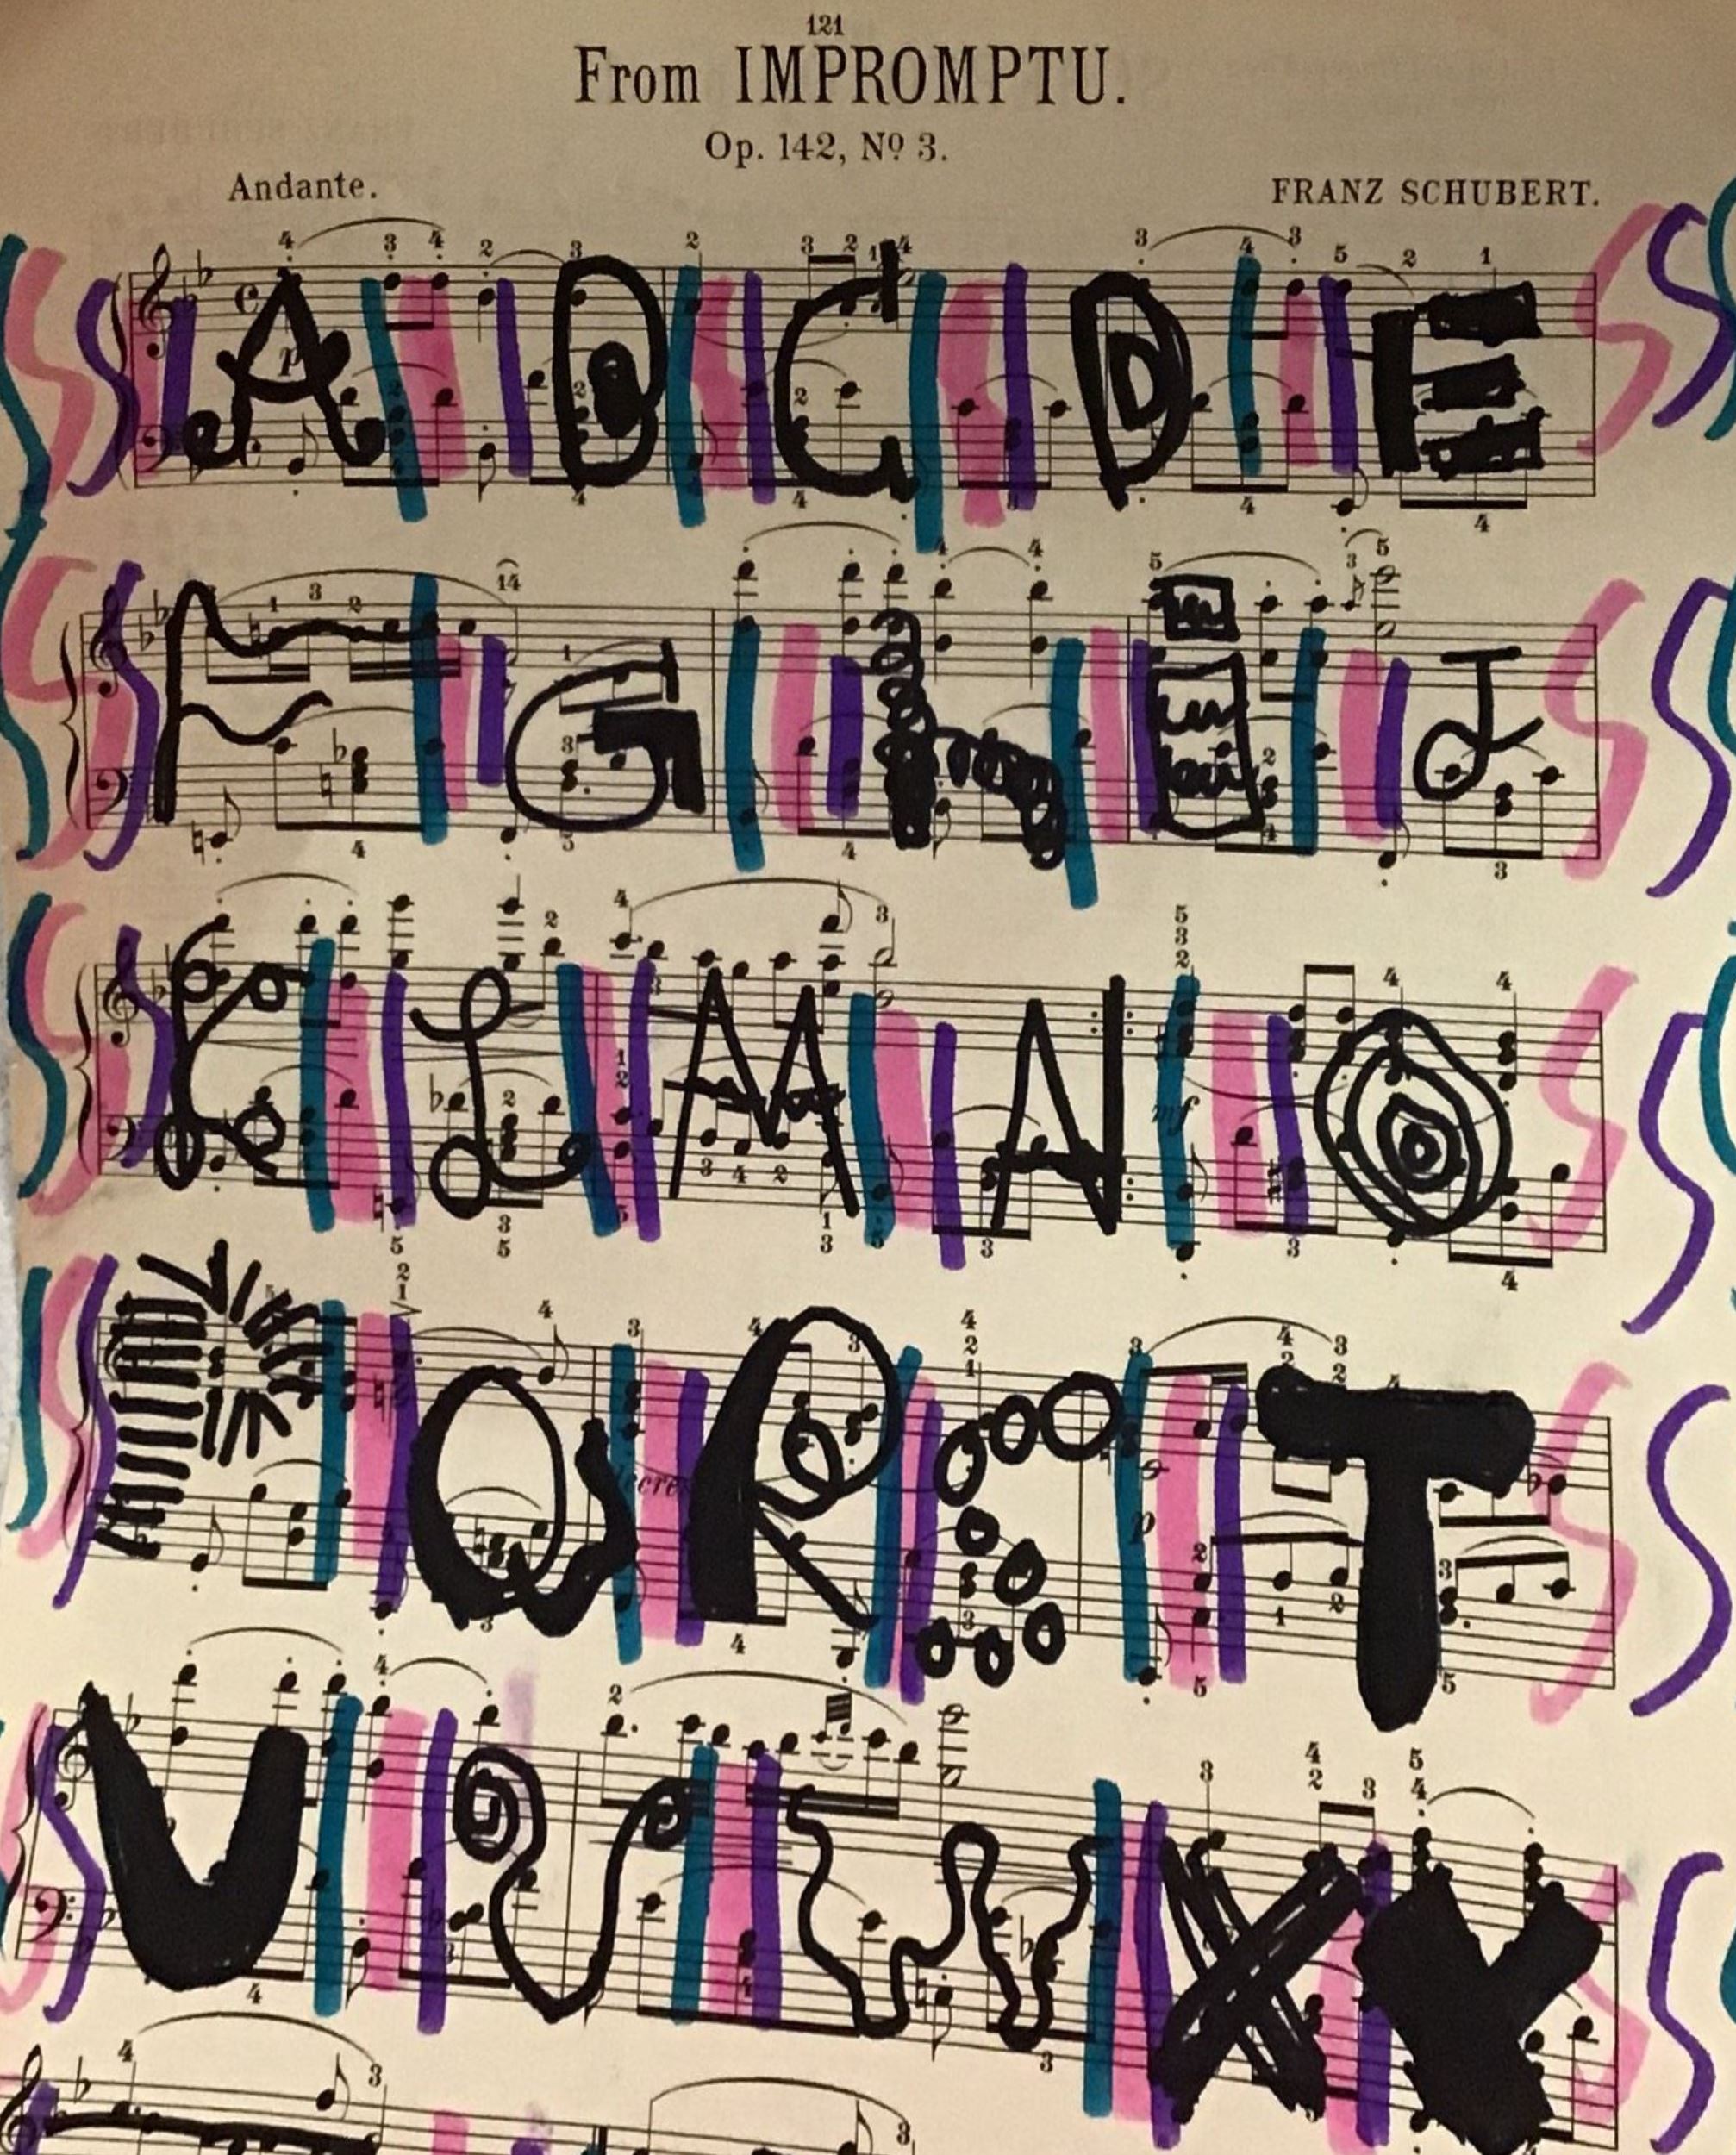 121
From IMPROMPTU.
Op. 142, Nº 3.
Andante.
FRANZ SCHUBERT.
A B C D E
F G h i J
K L M N O
P Q R S T
U V W X Y